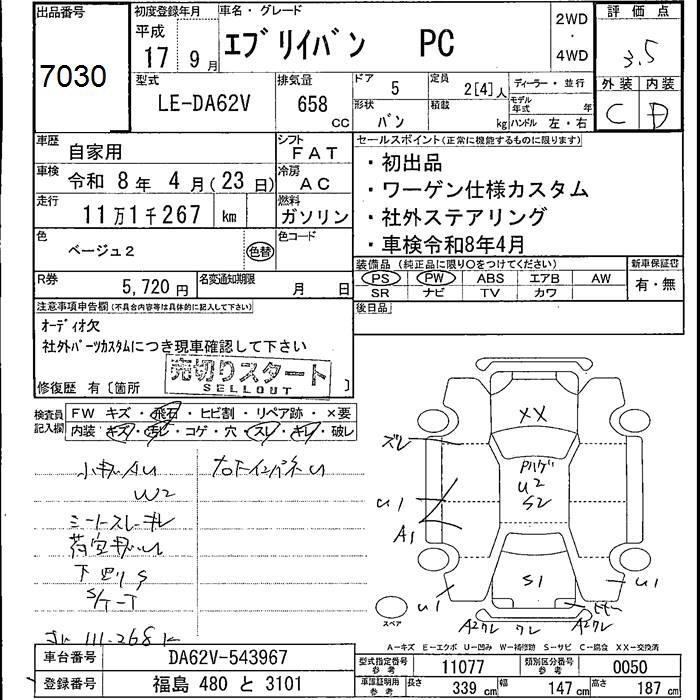 出品番号 初度登録年月 車名・グレード 評価点
7030 平成 17 9月 エブリイバン PC 2WD・4WD 3.5
型式 排気量 ドア 定員 ディーラー・並行 外装 内装
LE-DA62V 658 CC 5 2[4]人 モデル年式 年 C D
形状 バン 積載 kg ハンドル 左・右
車歴 自家用 シフト FAT
車検 令和 8年 4月(23日) 冷房 AC
走行 11万1千267 km 燃料 ガソリン
色 ベージュ2 色替 色コード
R券 5,720円 名変通知期限 月 日
セールスポイント(正常に機能するものに限ります)
・初出品
・ワーゲン仕様カスタム
・社外ステアリング
・車検令和8年4月
装備品(純正品に限り○をつけてください) 新車保証書
PS PW ABS エアB AW 有・無
SR ナビ TV カワ
後日品
注意事項申告欄(不具合内容等は具体的に記入して下さい)
オーディオ欠
社外パーツカスタムにつき現車確認して下さい
売切りスタート
SELLOUT
修復歴 有〔箇所 〕
検査員記入欄 FW キズ・飛石・ヒビ割・リペア跡・×要
内装 キズ・汚レ・コゲ・穴・スレ・キレ・破レ
W2
シートスレ キレ
下回りS
S/T-T
111268k
XX
ズレ
U2
S2
U1
A1
S1
U1
U1
A2ワレ ワレ A2ワレ
スペア
A-キズ E-エクボ U-凹み W-補修跡 S-サビ C-腐食 XX-交換済
車台番号 DA62V-543967
型式指定番号 11077 類別区分番号 0050
登録番号 福島 480 と 3101
車検証明用参考 長さ 339 cm 幅 147 cm 高さ 187 cm